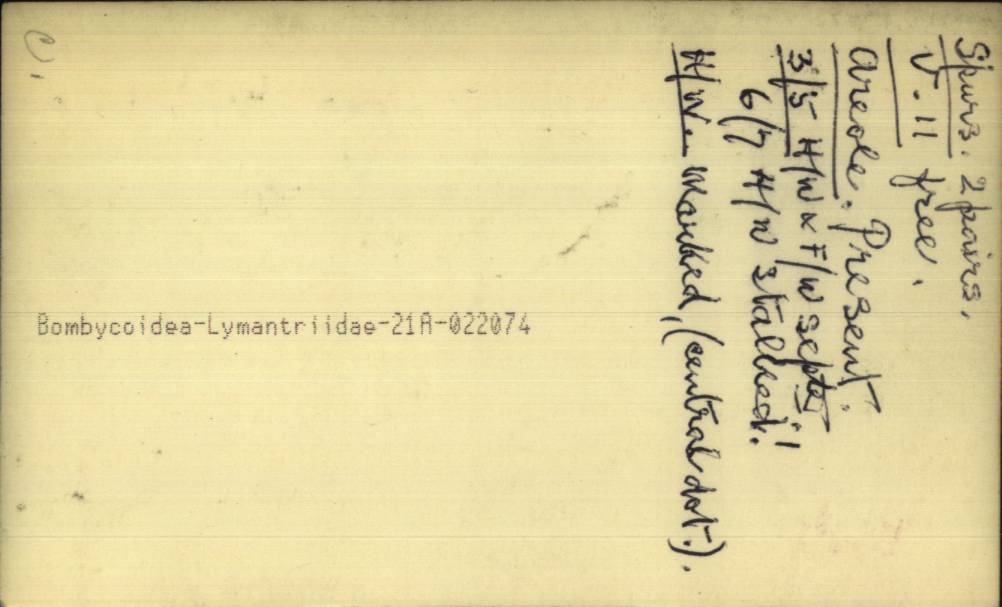 Spurs. 2 pairs.
V. 11 free.
Areole. Present.
3/5 H/W & F/W septe!
6/7 H/W stalked!
H/W. Marked, (central dot.).
Bombycoidea-Lymantriidae-21A-022074
C.